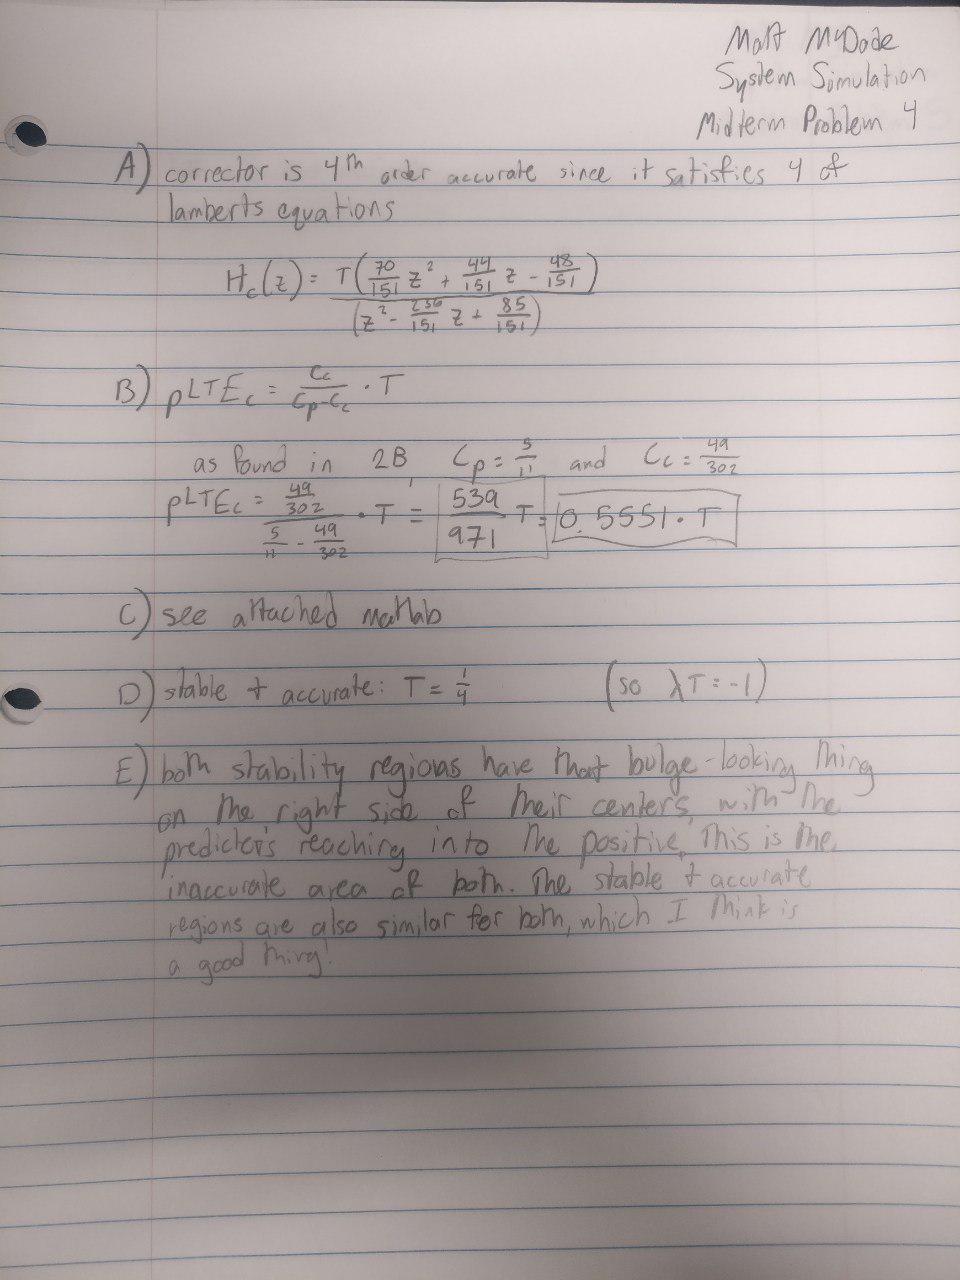 Matt McDade
System Simulation
Midterm Problem 4
A) corrector is 4th order accurate since it satisfies 4 of
lamberts equations
H_c(z) = T(70/151 z² + 44/151 z - 48/151) / (z² - 236/151 z + 85/151)
B) pLTE_c = C_c/(C_p-C_c) · T
as found in 2B C_p = 5/11 and C_c = 49/302
pLTE_c = (49/302)/(5/11 - 49/302) · T = 539/971 T = 0.5551 · T
C) see attached matlab
D) stable + accurate: T = 1/4 (so λT = -1)
E) both stability regions have that bulge-looking thing
on the right side of their centers, with the
predictor's reaching into the positive. This is the
inaccurate area of both. The stable + accurate
regions are also similar for both, which I think is
a good thing!